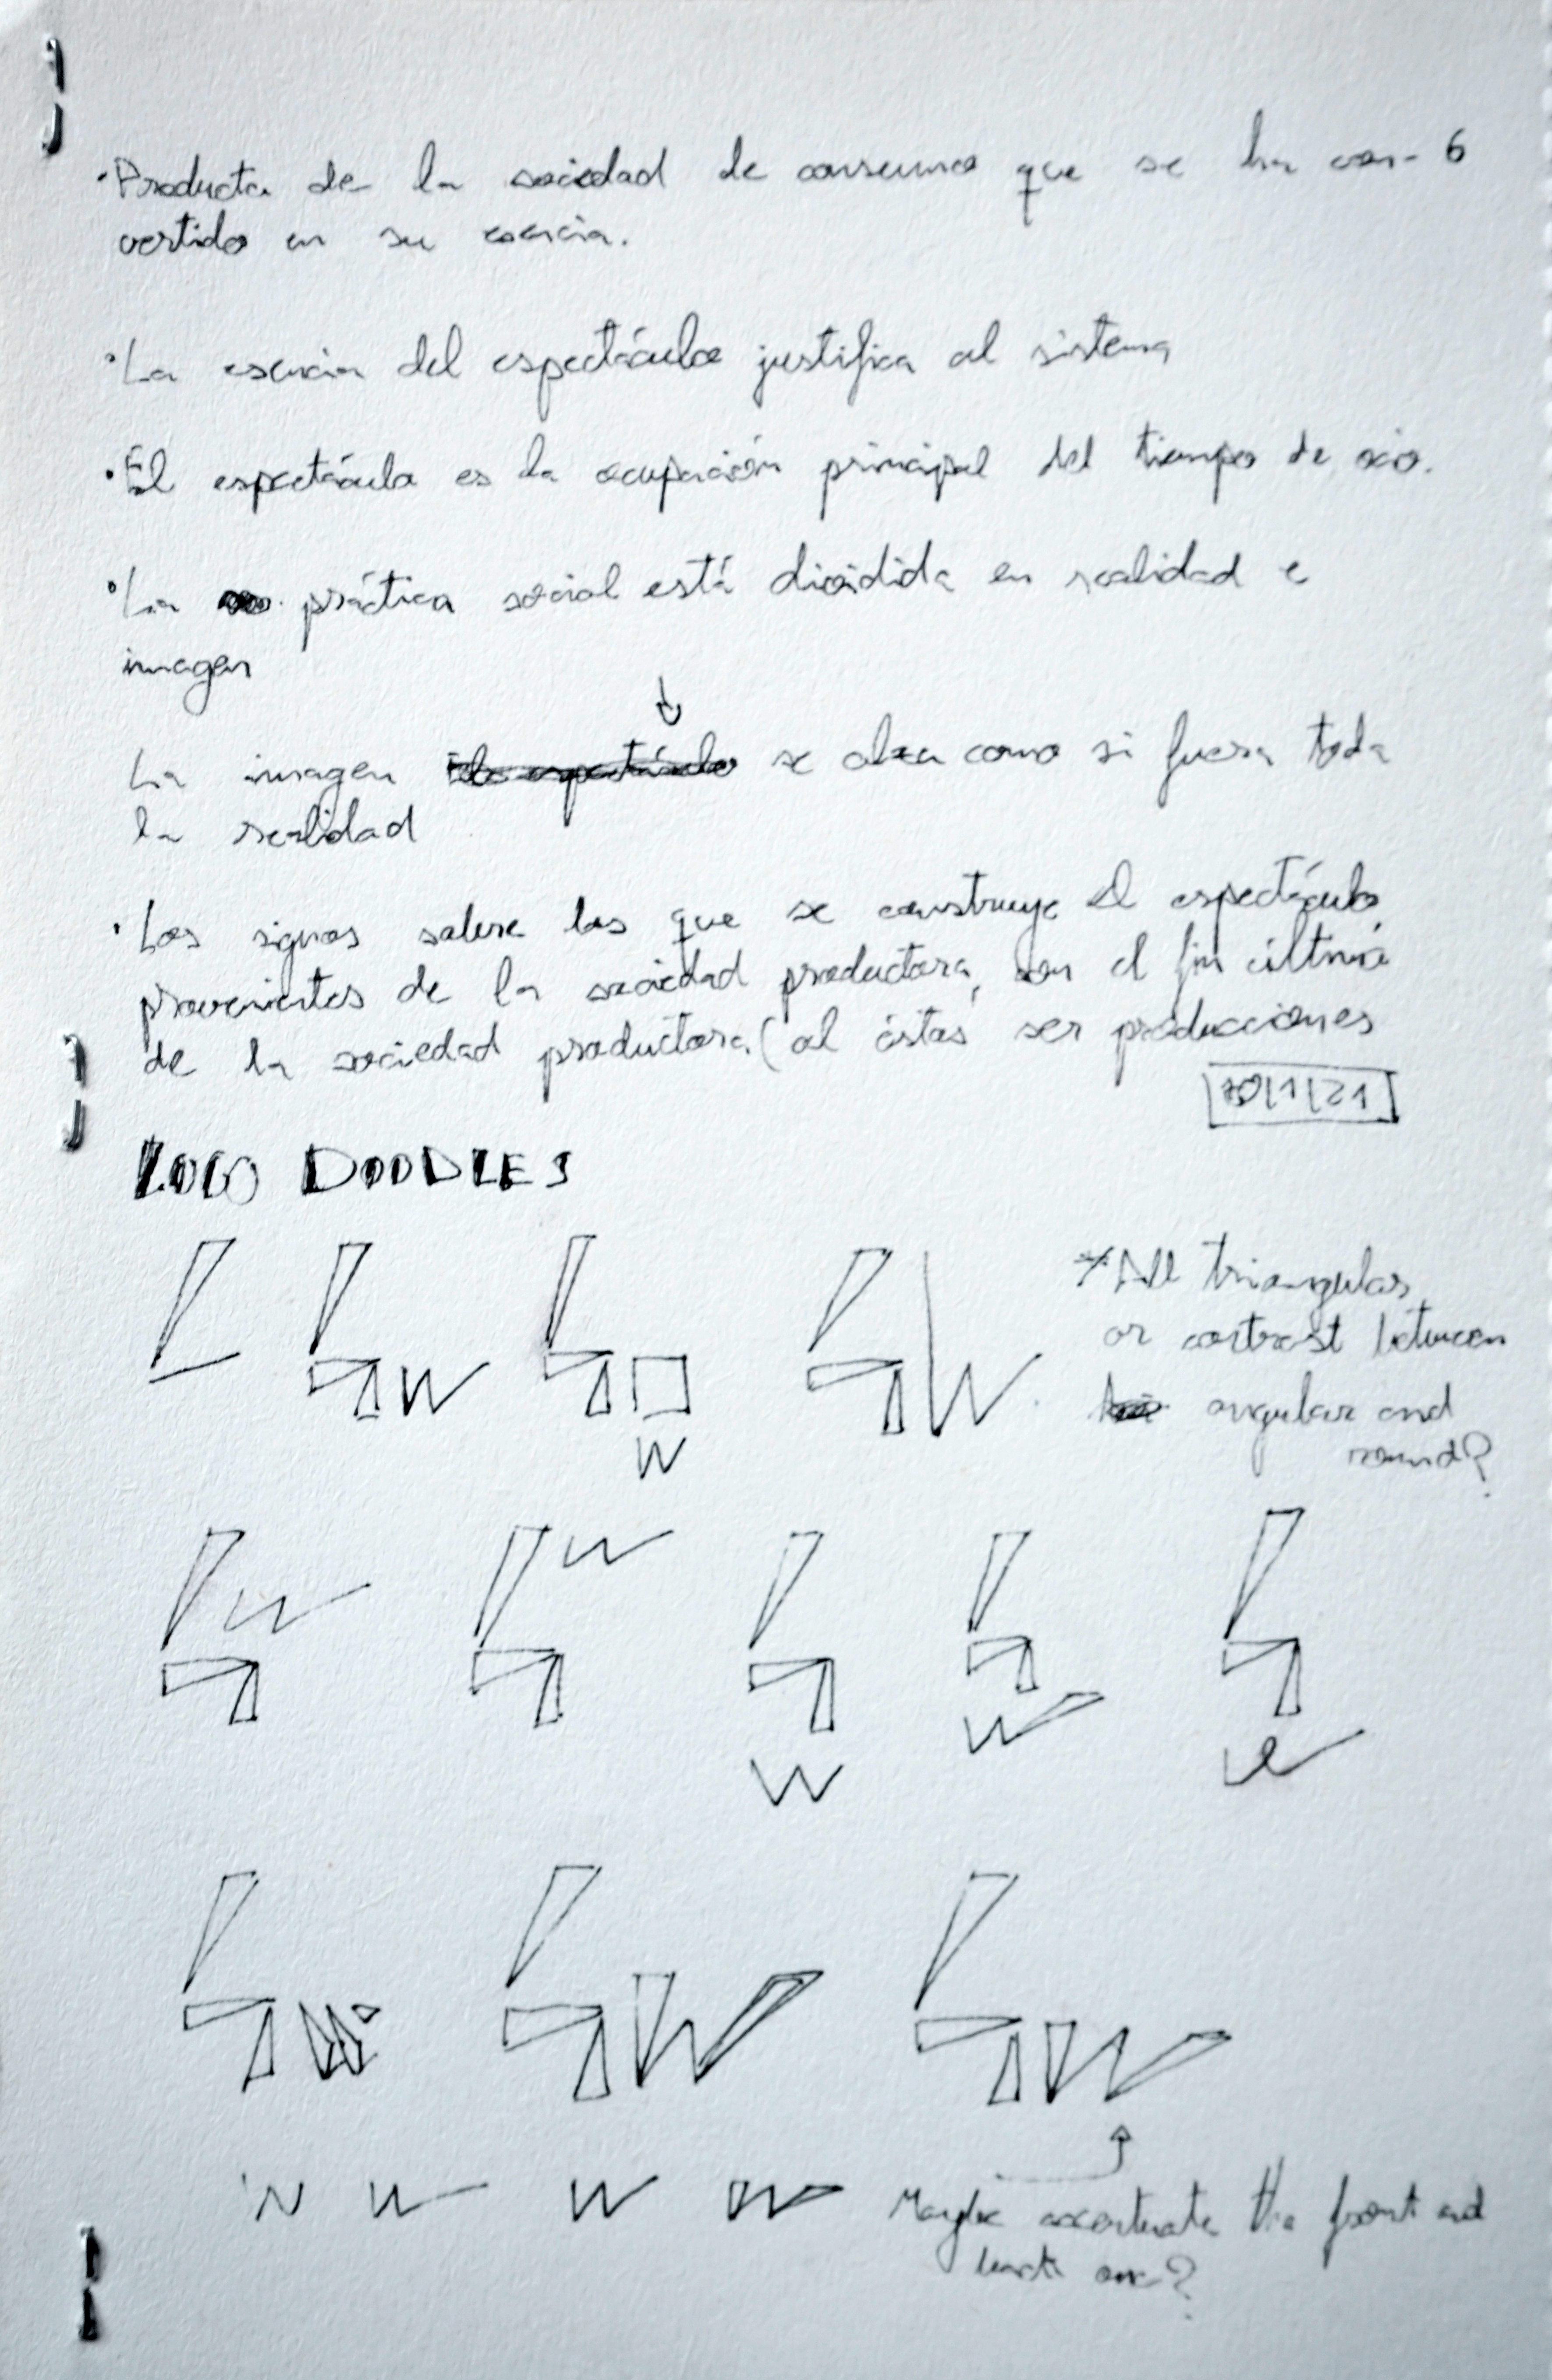 ·Producto de la sociedad de consumo que se ha con- 6
vertido en su esencia.
·La esencia del espectáculo justifica al sistema
·El espectáculo es la ocupación principal del tiempo de ocio.
·La práctica social está dividida en realidad e
imagen
La imagen se alza como si fuera toda
la realidad
·Los signos sobre los que se construye el espectáculo
provenientes de la sociedad productora, son el fin último
de la sociedad productora (al éstas ser producciones
/1/21
LOGO DOODLES
*All triangular
or contrast between
angular and
round?
W
W
W
W
W
W
W
W
W
W
W
W
W W W W Maybe accentuate the front and
back one?